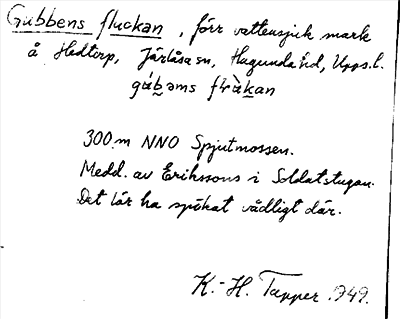 Gubbens fluckan, förr vattensjuk mark
å Hedtorp, Järlåsa sn, Hagunda hd, Upps.l.
300 m NNO Spjutmossen.
Medd. av Erikssons i Soldatstugan.
Det lär ha spökat rådligt där.
K.-H. Tapper 1949.